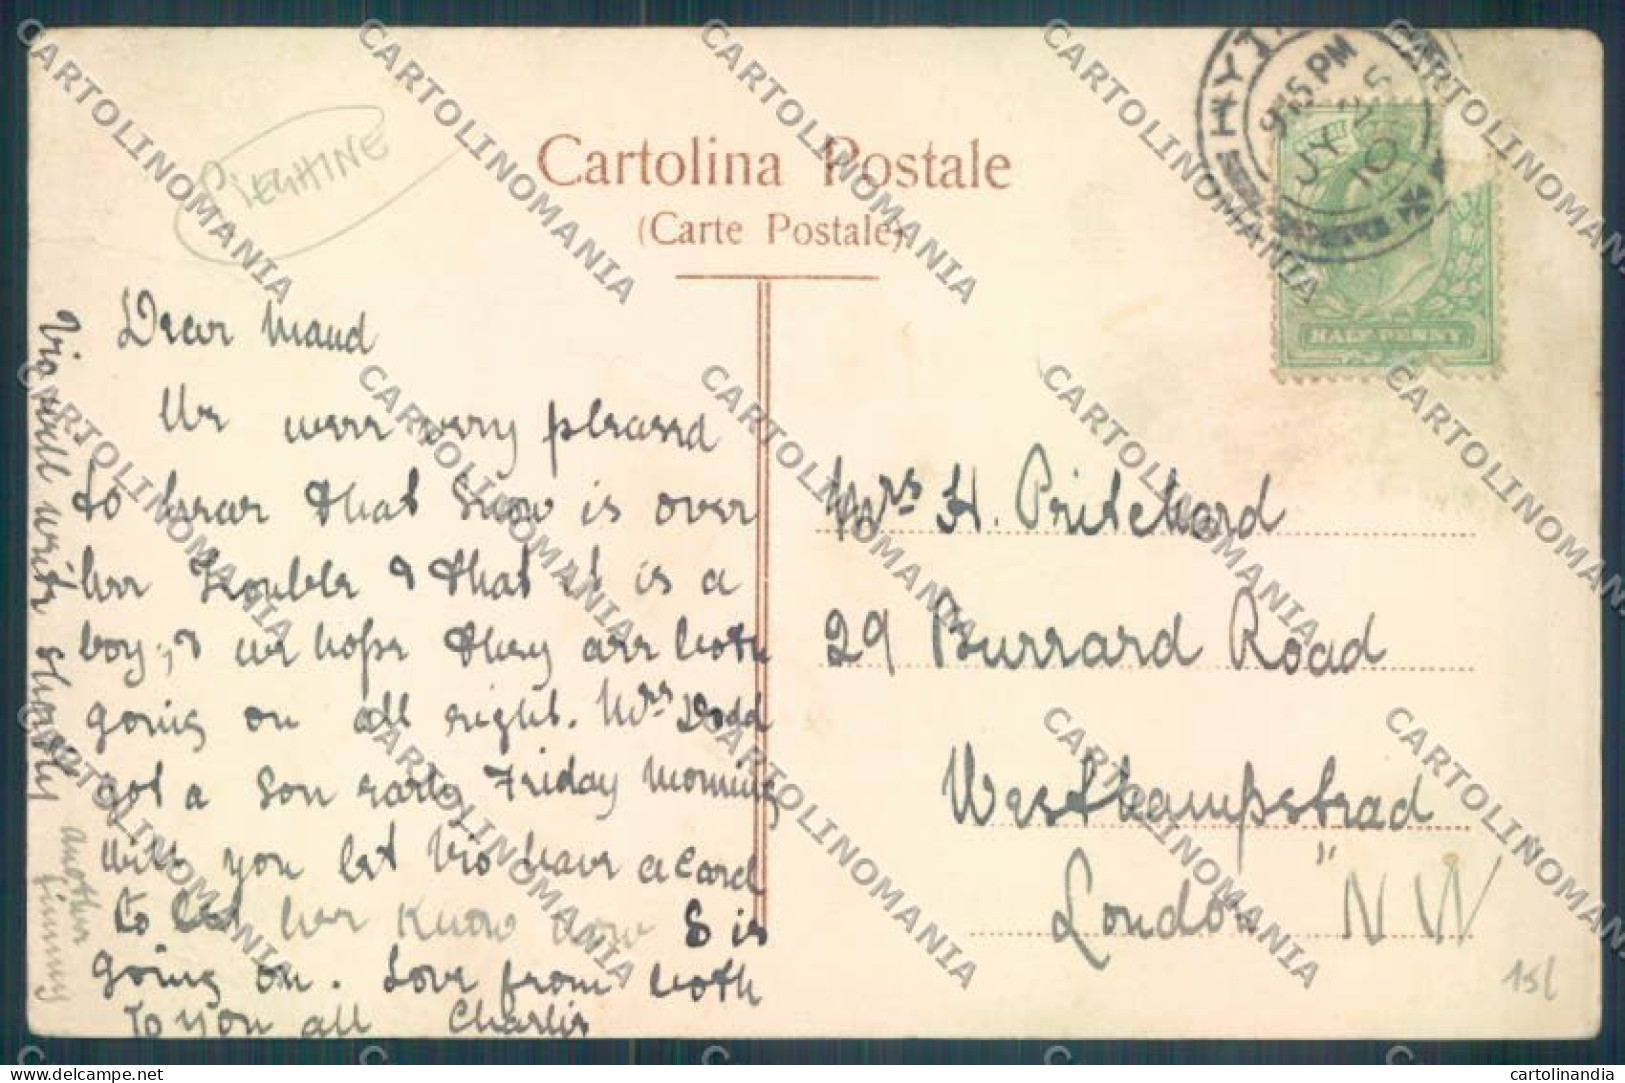 PIEGHINE
Cartolina Postale
(Carte Postale)
9.15 PM
JY 25
10
HALF PENNY
Dear Maud
We were very pleased
to hear that Snow is over
her trouble & that it is a
boy, & we hope they are both
going on all right. Mrs Dodd
got a son early Friday morning
Will you let Vio have a card
to let her know how S is
going on. Love from both
to you all Charlie
Vio will write shortly
another
Jimmy
Mrs H. Pritchard
29 Burrard Road
Westhampstead
London N W
15L
CARTOLINOMANIA
delcampe.net
cartolinandia